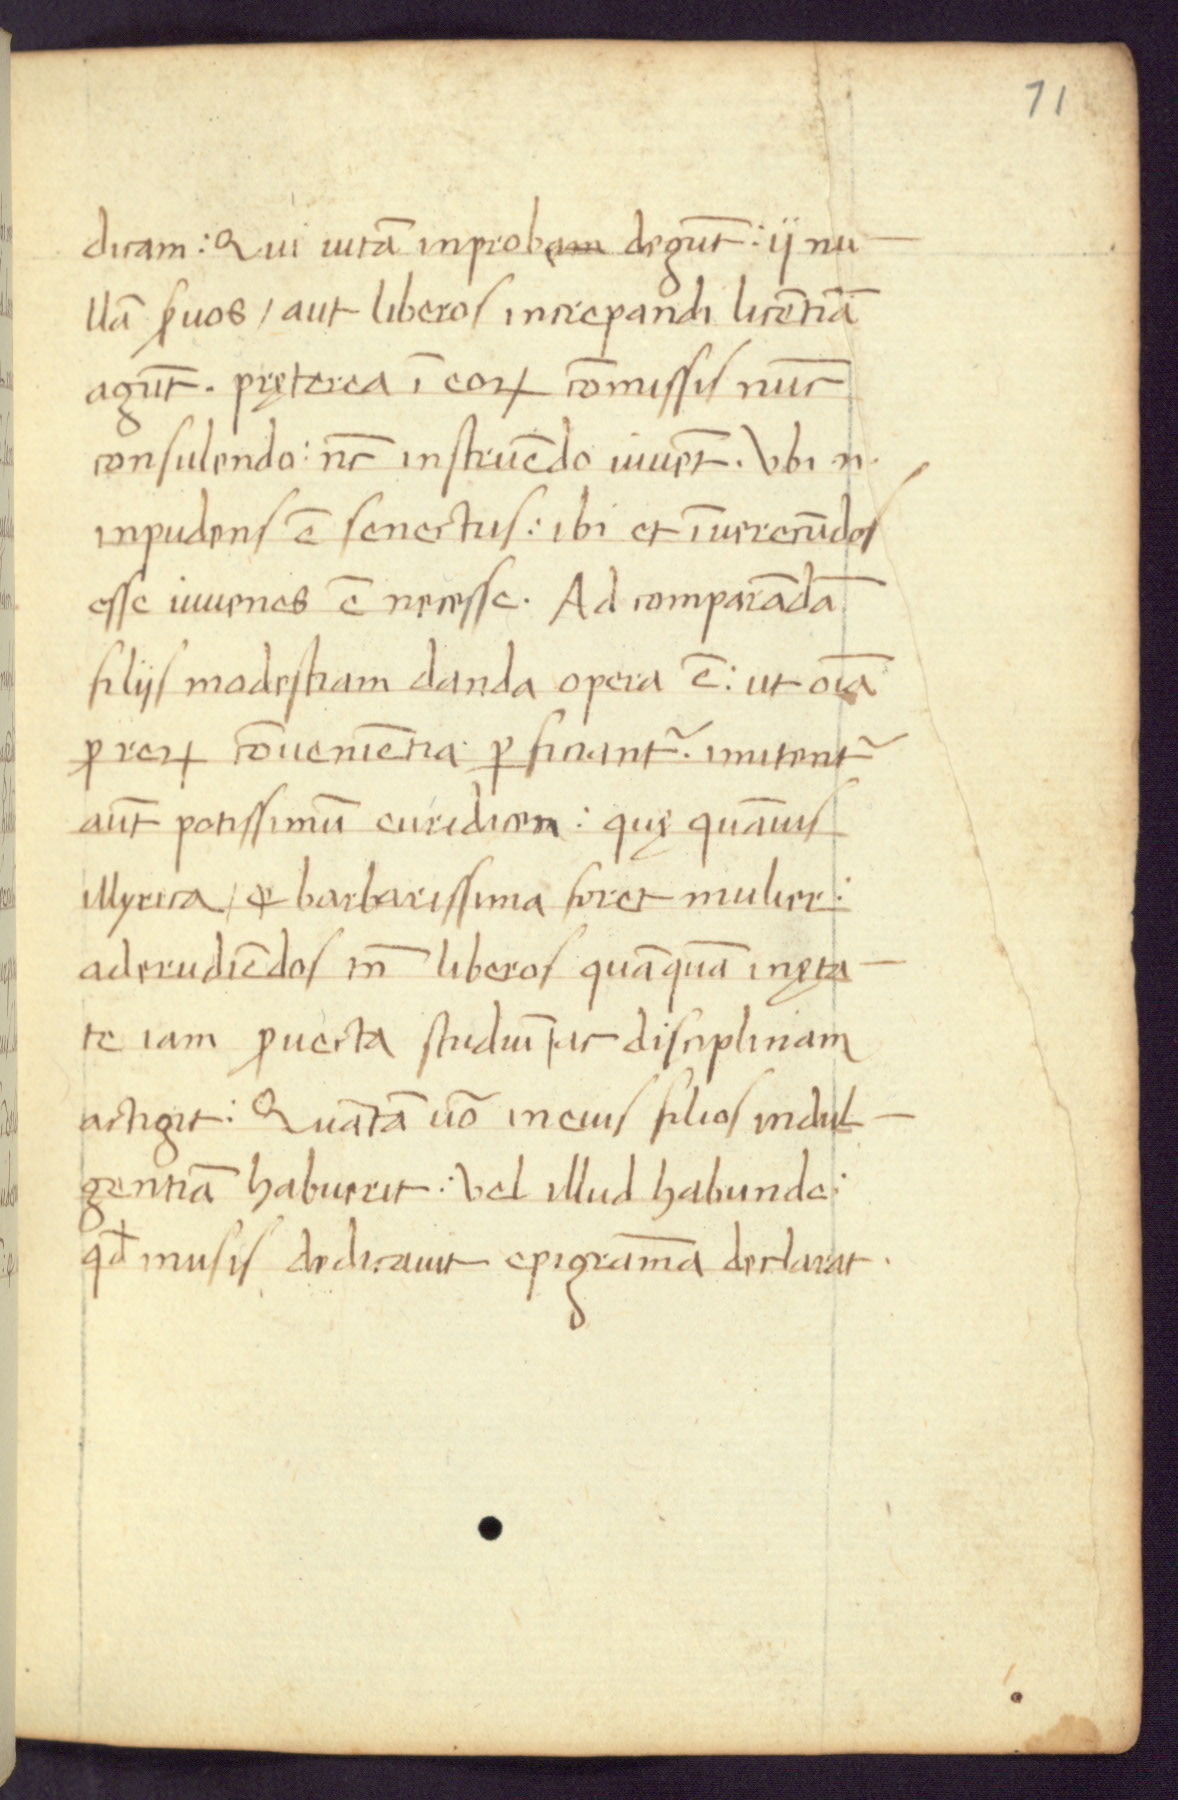 71
dicam: Qui uitā inprobam degūt: ij nu—
llā ꝑuos / aut liberos increpandi licētiā
agūt. pręterea ī eoꝝ cōmissis nūc
consulendo: nc̄ instruēdo iuuēt. Vbi n.
inpudens ē senectus: ibi et īuerecūdos
esse iuuenes ē necesse. Ad comparādā
filijs modestiam danda opera ē: ut oīa
ꝓ reꝝ cōueniētia ꝑficiant᷑. imitent᷑
aūt potissimū euridicen: quę quāuis
illyrica / et barbarissima foret mulier:
aderudiēdos tn̄ liberos quāquā inęta—
te iam ꝓuecta studiū ac disciplinam
actigit: Quātā uō ineius filios indul—
gentiā habuerit: Vel illud habunde:
qđ musis dedicauit epigrāma declarat.